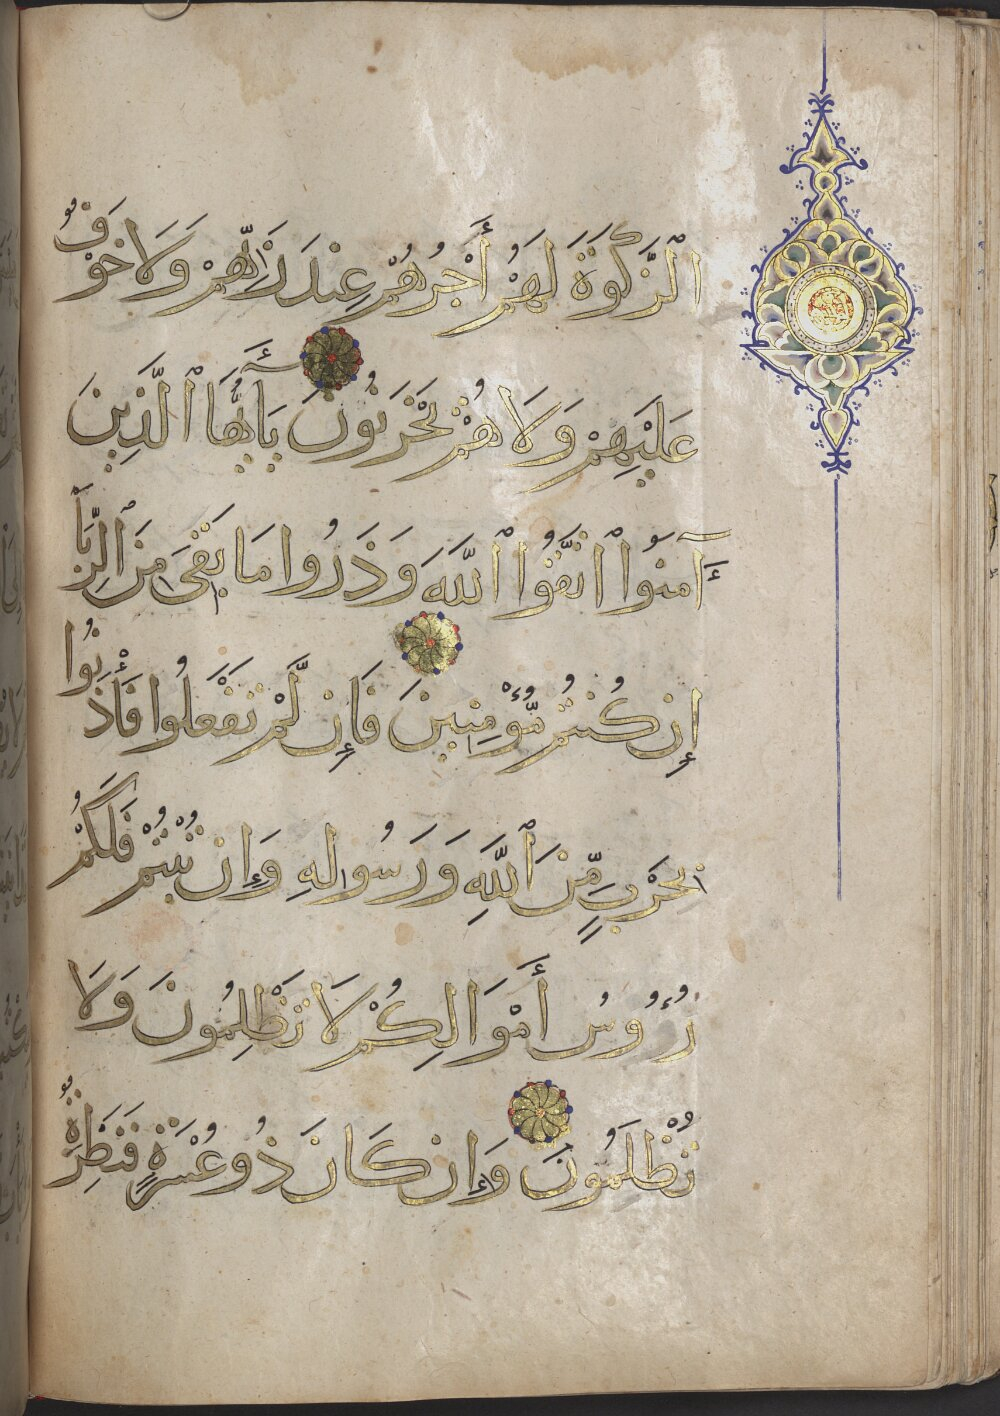 الزَّكَوٰةَ لَهُمْ أَجْرُهُمْ عِندَ رَبِّهِمْ وَلَا خَوْفٌ
عَلَيْهِمْ وَلَا هُمْ يَحْزَنُونَ يَٰٓأَيُّهَا الَّذِينَ
آمَنُوا اتَّقُوا اللَّهَ وَذَرُوا مَا بَقِىَ مِنَ الرِّبَا
إِن كُنتُم مُّؤْمِنِينَ فَإِن لَّمْ تَفْعَلُوا فَأْذَنُوا
بِحَرْبٍ مِّنَ اللَّهِ وَرَسُولِهِ وَإِن تُبْتُمْ فَلَكُمْ
رُءُوسُ أَمْوَالِكُمْ لَا تَظْلِمُونَ وَلَا
تُظْلَمُونَ وَإِن كَانَ ذُو عُسْرَةٍ فَنَظِرَةٌ